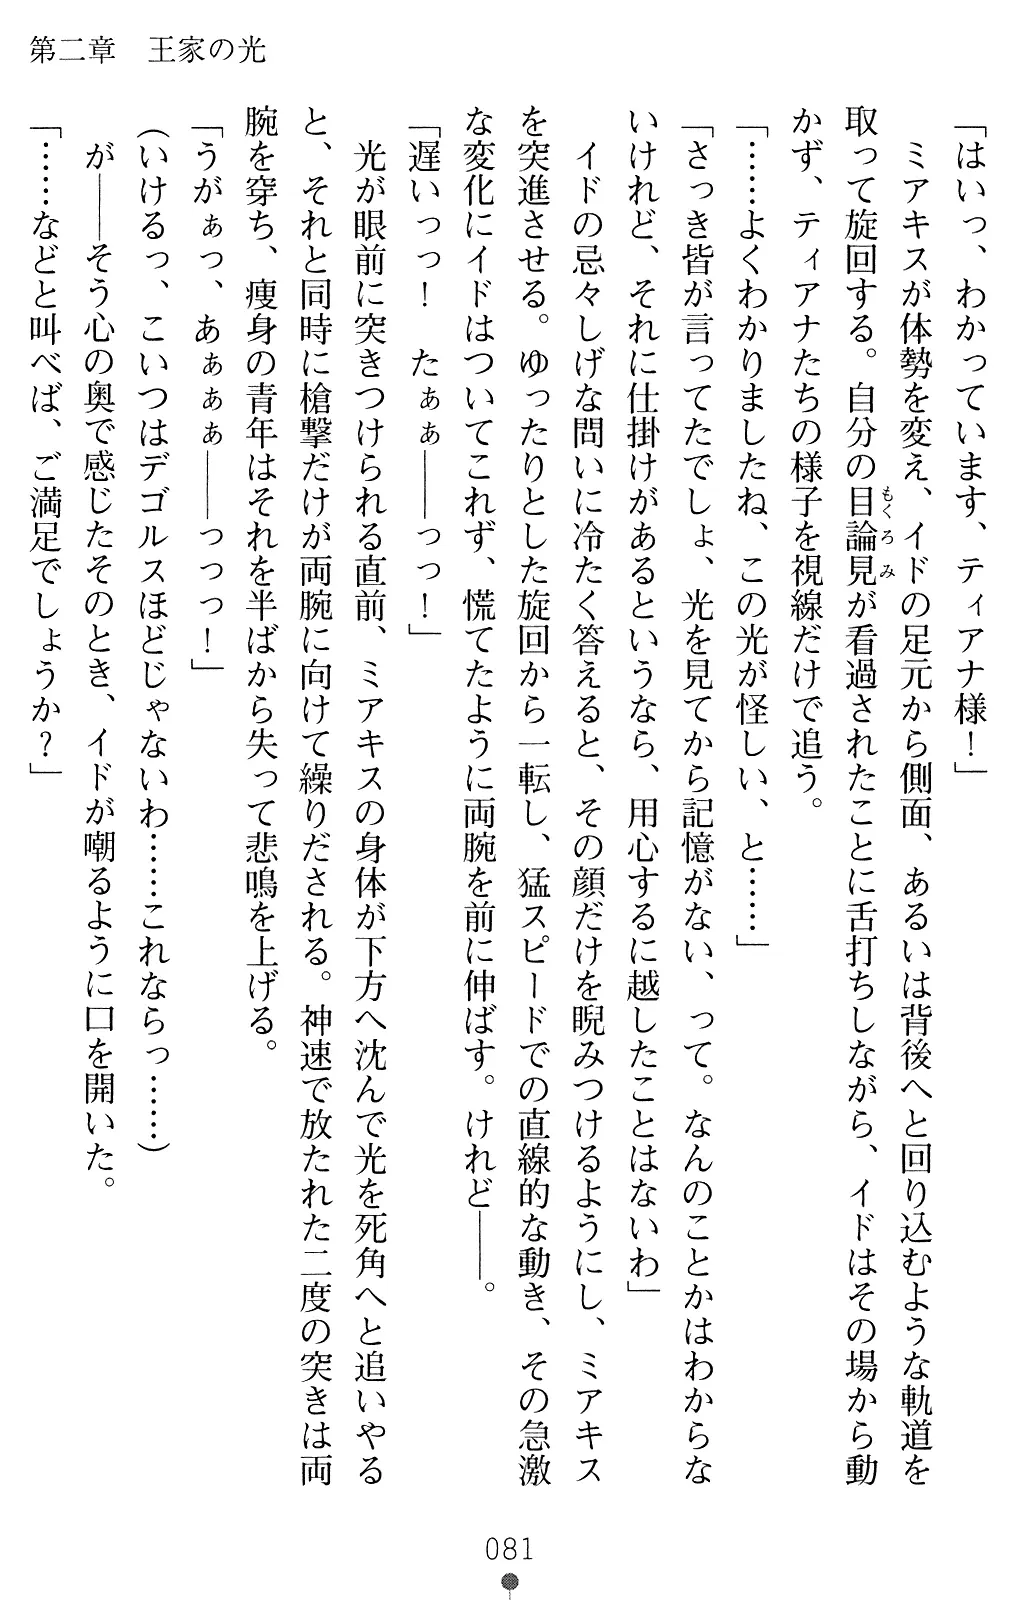 第二章　王家の光
「はいっ、わかっています、ティアナ様！」
　ミアキスが体勢を変え、イドの足元から側面、あるいは背後へと回り込むような軌道を
取って旋回する。自分の目論見が看過されたことに舌打ちしながら、イドはその場から動
かず、ティアナたちの様子を視線だけで追う。
「……よくわかりましたね、この光が怪しい、と……」
「さっき皆が言ってたでしょ、光を見てから記憶がない、って。なんのことかはわからな
いけれど、それに仕掛けがあるというなら、用心するに越したことはないわ」
　イドの忌々しげな問いに冷たく答えると、その顔だけを睨みつけるようにし、ミアキス
を突進させる。ゆったりとした旋回から一転し、猛スピードでの直線的な動き、その急激
な変化にイドはついてこれず、慌てたように両腕を前に伸ばす。けれど――。
「遅いっっ！　たぁぁ――っっ！」
　光が眼前に突きつけられる直前、ミアキスの身体が下方へ沈んで光を死角へと追いやる
と、それと同時に槍撃だけが両腕に向けて繰りだされる。神速で放たれた二度の突きは両
腕を穿ち、痩身の青年はそれを半ばから失って悲鳴を上げる。
「うがぁっ、あぁぁぁ――っっっ！」
（いけるっ、こいつはデゴルスほどじゃないわ……これならっ……）
　が――そう心の奥で感じたそのとき、イドが嘲るように口を開いた。
「……などと叫べば、ご満足でしょうか？」
もくろみ
081